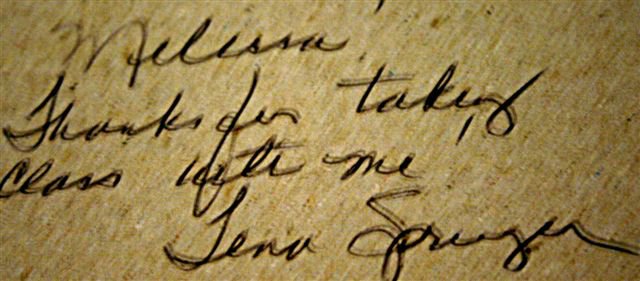 Melissa
Thanks for taking
class with me
Lena